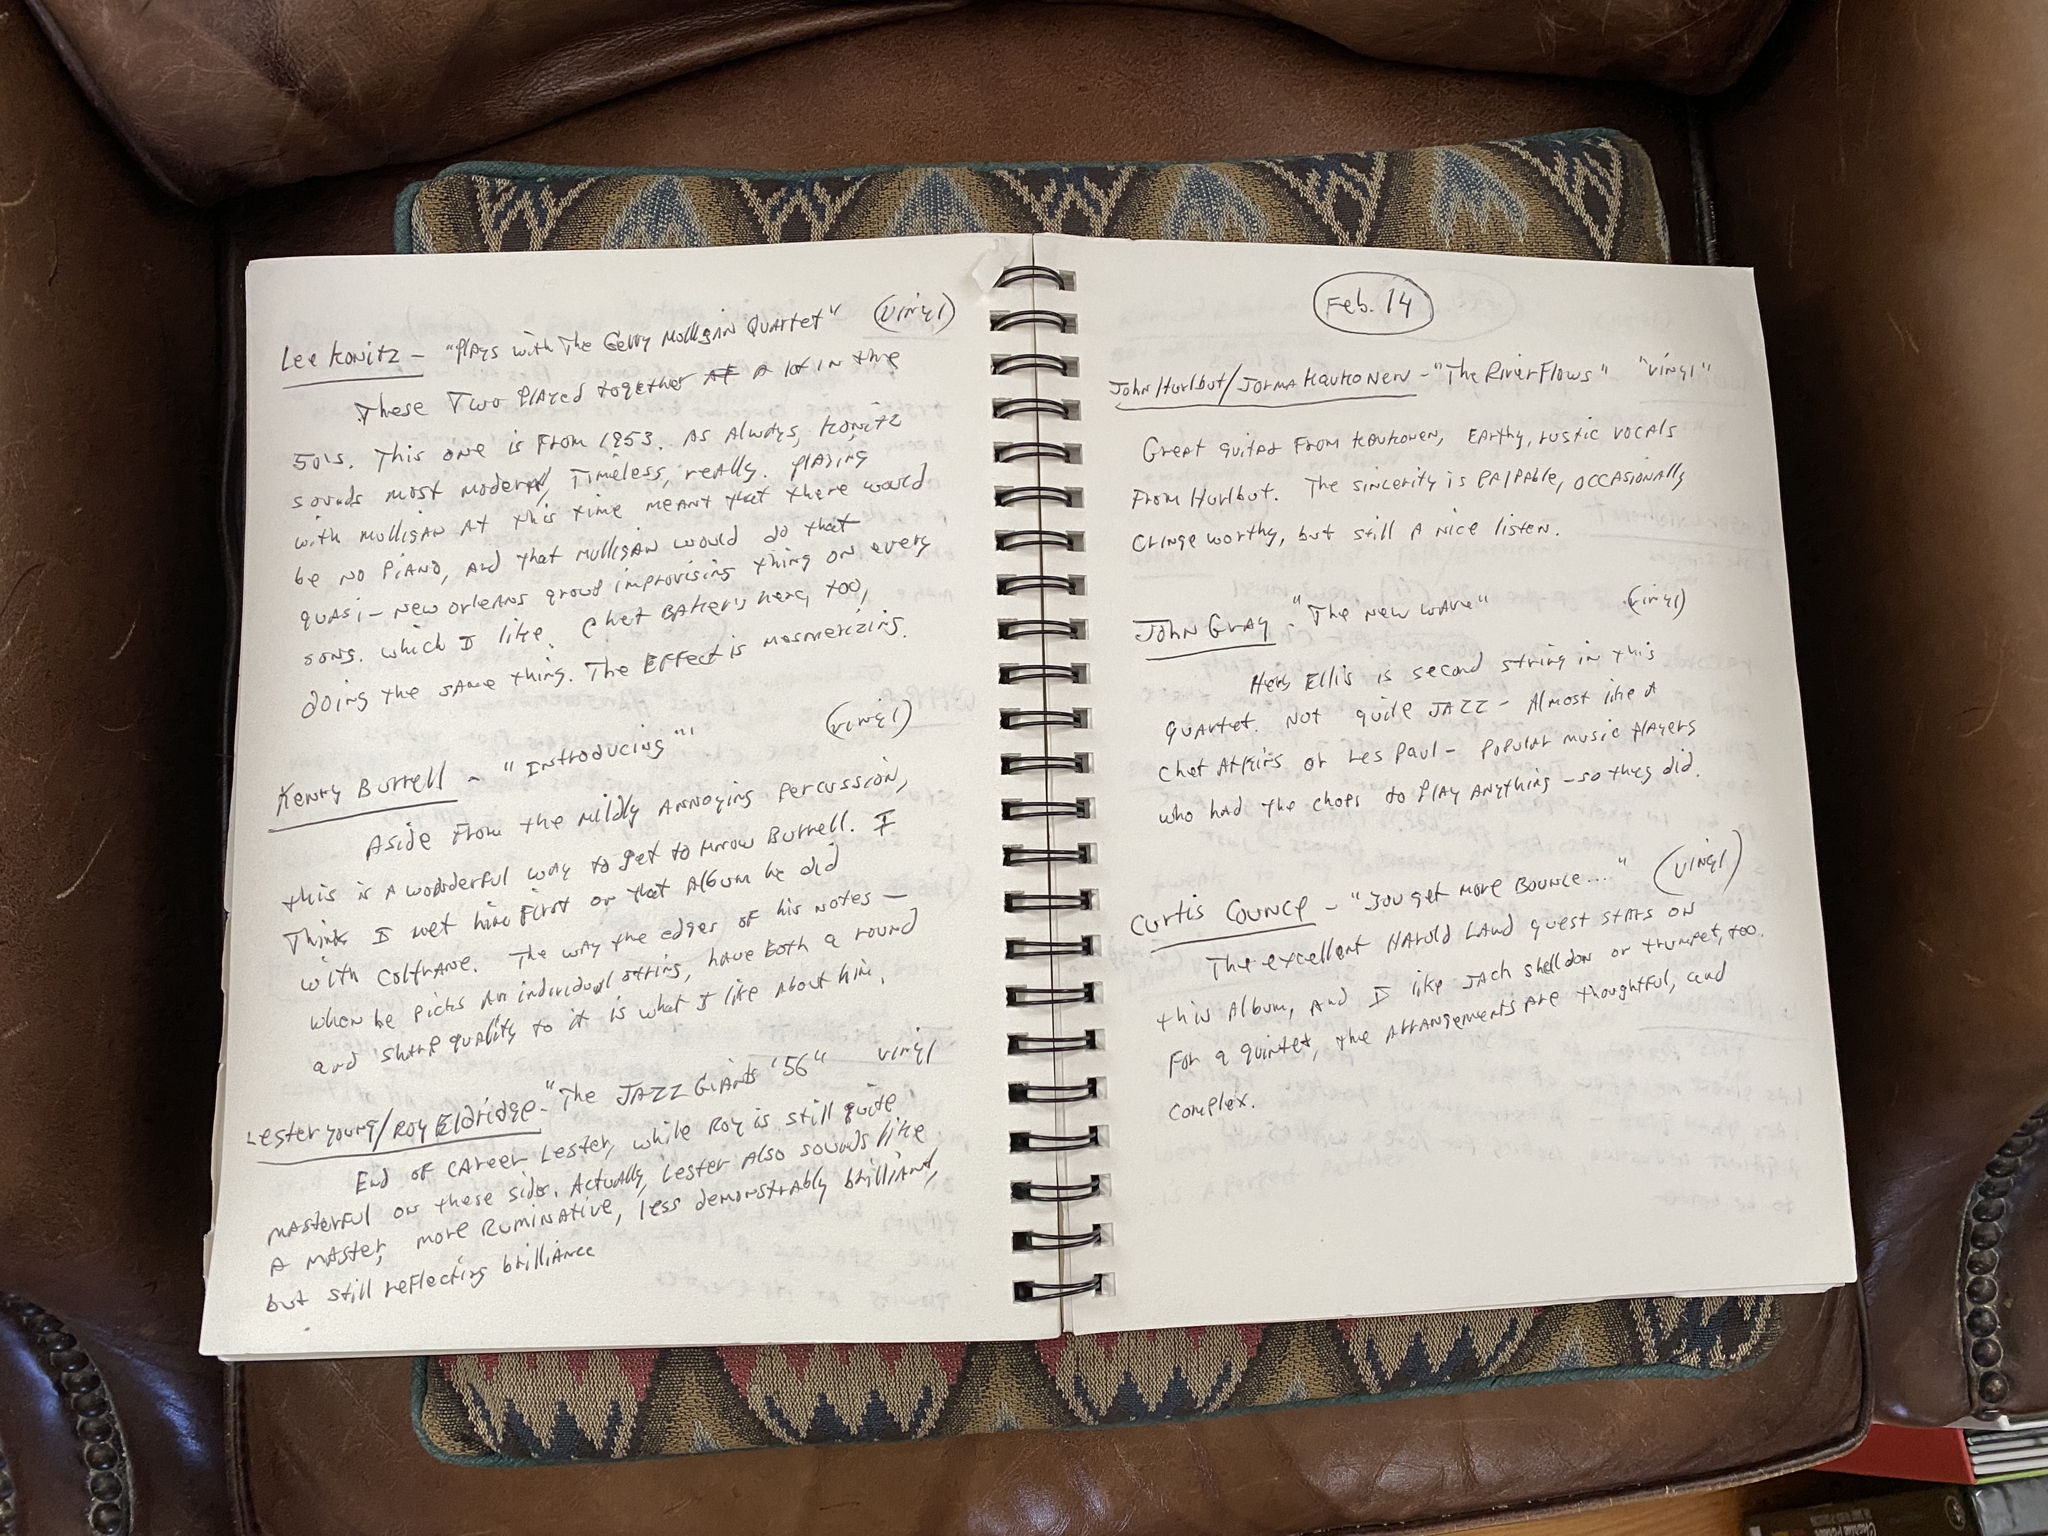 Lee Konitz - "Plays with The Gerry Mulligan Quartet" (vinyl)
These Two played together a lot in the
50's. This one is from 1953. As always, Konitz
sounds most modern, Timeless, really. Playing
with Mulligan at this time meant that there would
be no piano, and that Mulligan would do that
quasi-New Orleans group improvising thing on every
song. Which I like. Chet Baker's here, too,
doing the same thing. The Effect is mesmerizing.
Kenny Burrell - "Introducing" (vinyl)
Aside from the mildly annoying percussion,
this is a wonderful way to get to know Burrell. I
Think I met him first on that album he did
with Coltrane. The way the edges of his notes -
when he picks an individual string, have both a round
and sharp quality to it is what I like about him.
Lester Young/Roy Eldridge - "The Jazz Giants '56" vinyl
End of career Lester, while Roy is still quite
masterful on these sides. Actually, Lester also sounds like
a master, more ruminative, less demonstrably brilliant,
but still reflecting brilliance
Feb. 14
John Hurlbut/Jorma Kaukonen - "The River Flows" "vinyl"
Great guitar from Kaukonen, earthy, rustic vocals
from Hurlbut. The sincerity is palpable, occasionally
cringe worthy, but still a nice listen.
John Gray - "The New Wave" (vinyl)
Herb Ellis is second string in this
quartet. Not quite Jazz - Almost like a
Chet Atkins or Les Paul - popular music players
who had the chops to play anything - so they did.
Curtis Counce - "You get more Bounce..." (vinyl)
The excellent Harold Land guest stars on
this album, and I like Jack Shelldon on trumpet, too.
For a quintet, the arrangements are thoughtful, and
complex.